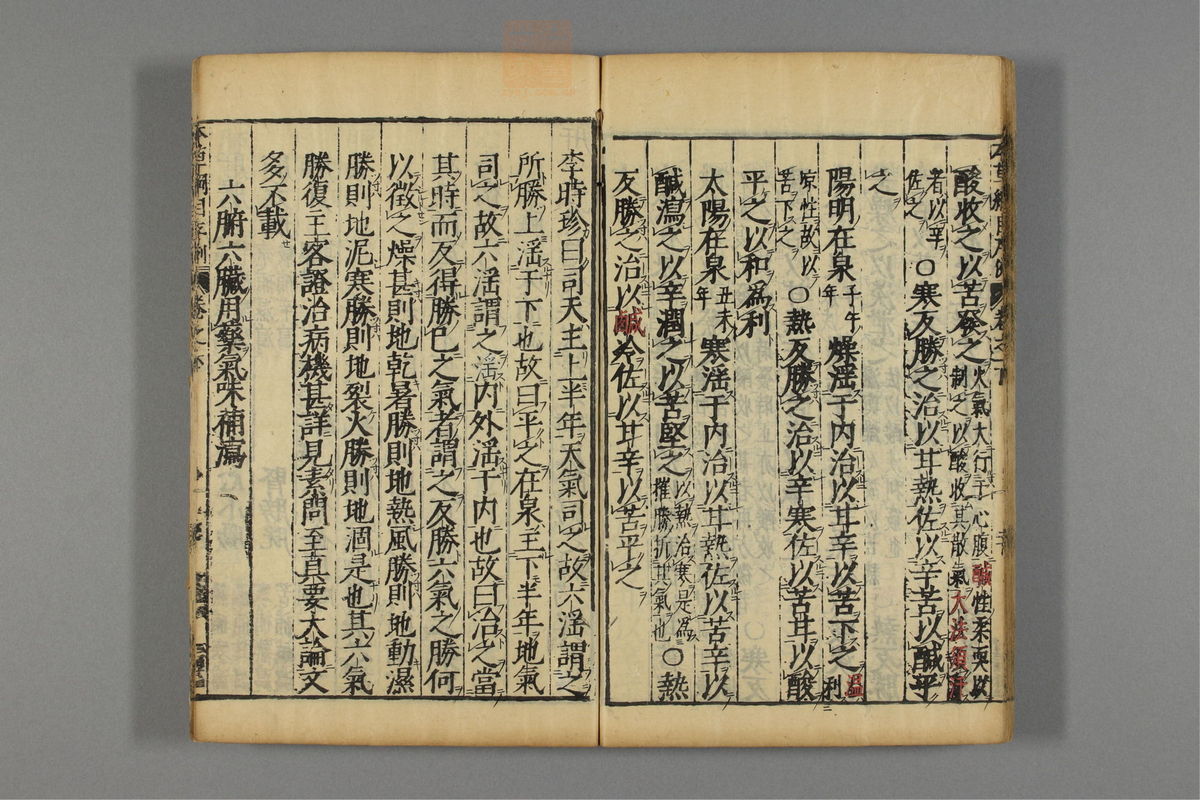 酸收之以苦發之火氣大行于心腹鹹性柔耎以制之以酸收其散氣大法須汗
者以辛佐之○寒反勝之治以甘熱佐以辛苦以鹹平
之
陽明在泉子午年燥淫于内治以甘辛以苦下之温利
凉性故以苦下之○熱反勝之治以辛寒佐以苦甘以酸
平之以和爲利
太陽在泉丑未年寒淫于内治以甘熱佐以苦辛以
鹹瀉之以辛潤之以苦堅之以熱治寒是爲摧勝折其氣也○熱
反勝之治以鹹冷佐以甘辛以苦平之
李時珍曰司天主上半年天氣司之故六淫謂之
所勝上淫于下也故曰平之在泉主下半年地氣
司之故六淫謂之淫内外淫于内也故曰治之當
其時而反得勝己之氣者謂之反勝六氣之勝何
以徵之燥甚則地乾暑勝則地熱風勝則地動濕
勝則地泥寒勝則地裂火勝則地涸是也其六氣
勝復主客證治病機甚詳見素問至真要大論文
多不載
六腑六臟用藥氣味補瀉